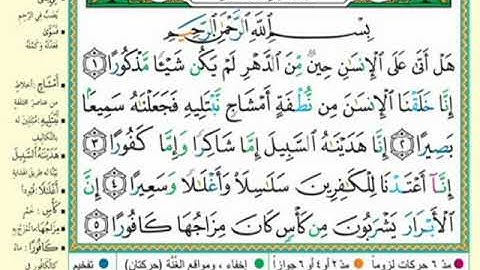 بِسْمِ ٱللَّهِ ٱلرَّحْمَٰنِ ٱلرَّحِيمِ
هَلْ أَتَىٰ عَلَى ٱلْإِنسَٰنِ حِينٌ مِّنَ ٱلدَّهْرِ لَمْ يَكُن شَيْـًٔا مَّذْكُورًا ١
إِنَّا خَلَقْنَا ٱلْإِنسَٰنَ مِن نُّطْفَةٍ أَمْشَاجٍ نَّبْتَلِيهِ فَجَعَلْنَٰهُ سَمِيعًا
بَصِيرًا ٢ إِنَّا هَدَيْنَٰهُ ٱلسَّبِيلَ إِمَّا شَاكِرًا وَإِمَّا كَفُورًا ٣
إِنَّآ أَعْتَدْنَا لِلْكَٰفِرِينَ سَلَٰسِلَا۟ وَأَغْلَٰلًا وَسَعِيرًا ٤ إِنَّ
ٱلْأَبْرَارَ يَشْرَبُونَ مِن كَأْسٍ كَانَ مِزَاجُهَا كَافُورًا ٥
أَمْشَاجٍ: أخلاط
من عناصر مختلفة
هَدَيْنَٰهُ ٱلسَّبِيلَ
كَأْسٍ: خمر
مِزَاجُهَا
كَافُورًا: ماء
مدّ ٦ حركات لزوماً
مدّ ٢ أو ٤ أو ٦ جوازاً
إخفاء، ومواقع الغُنَّة (حركتان)
تفخيم